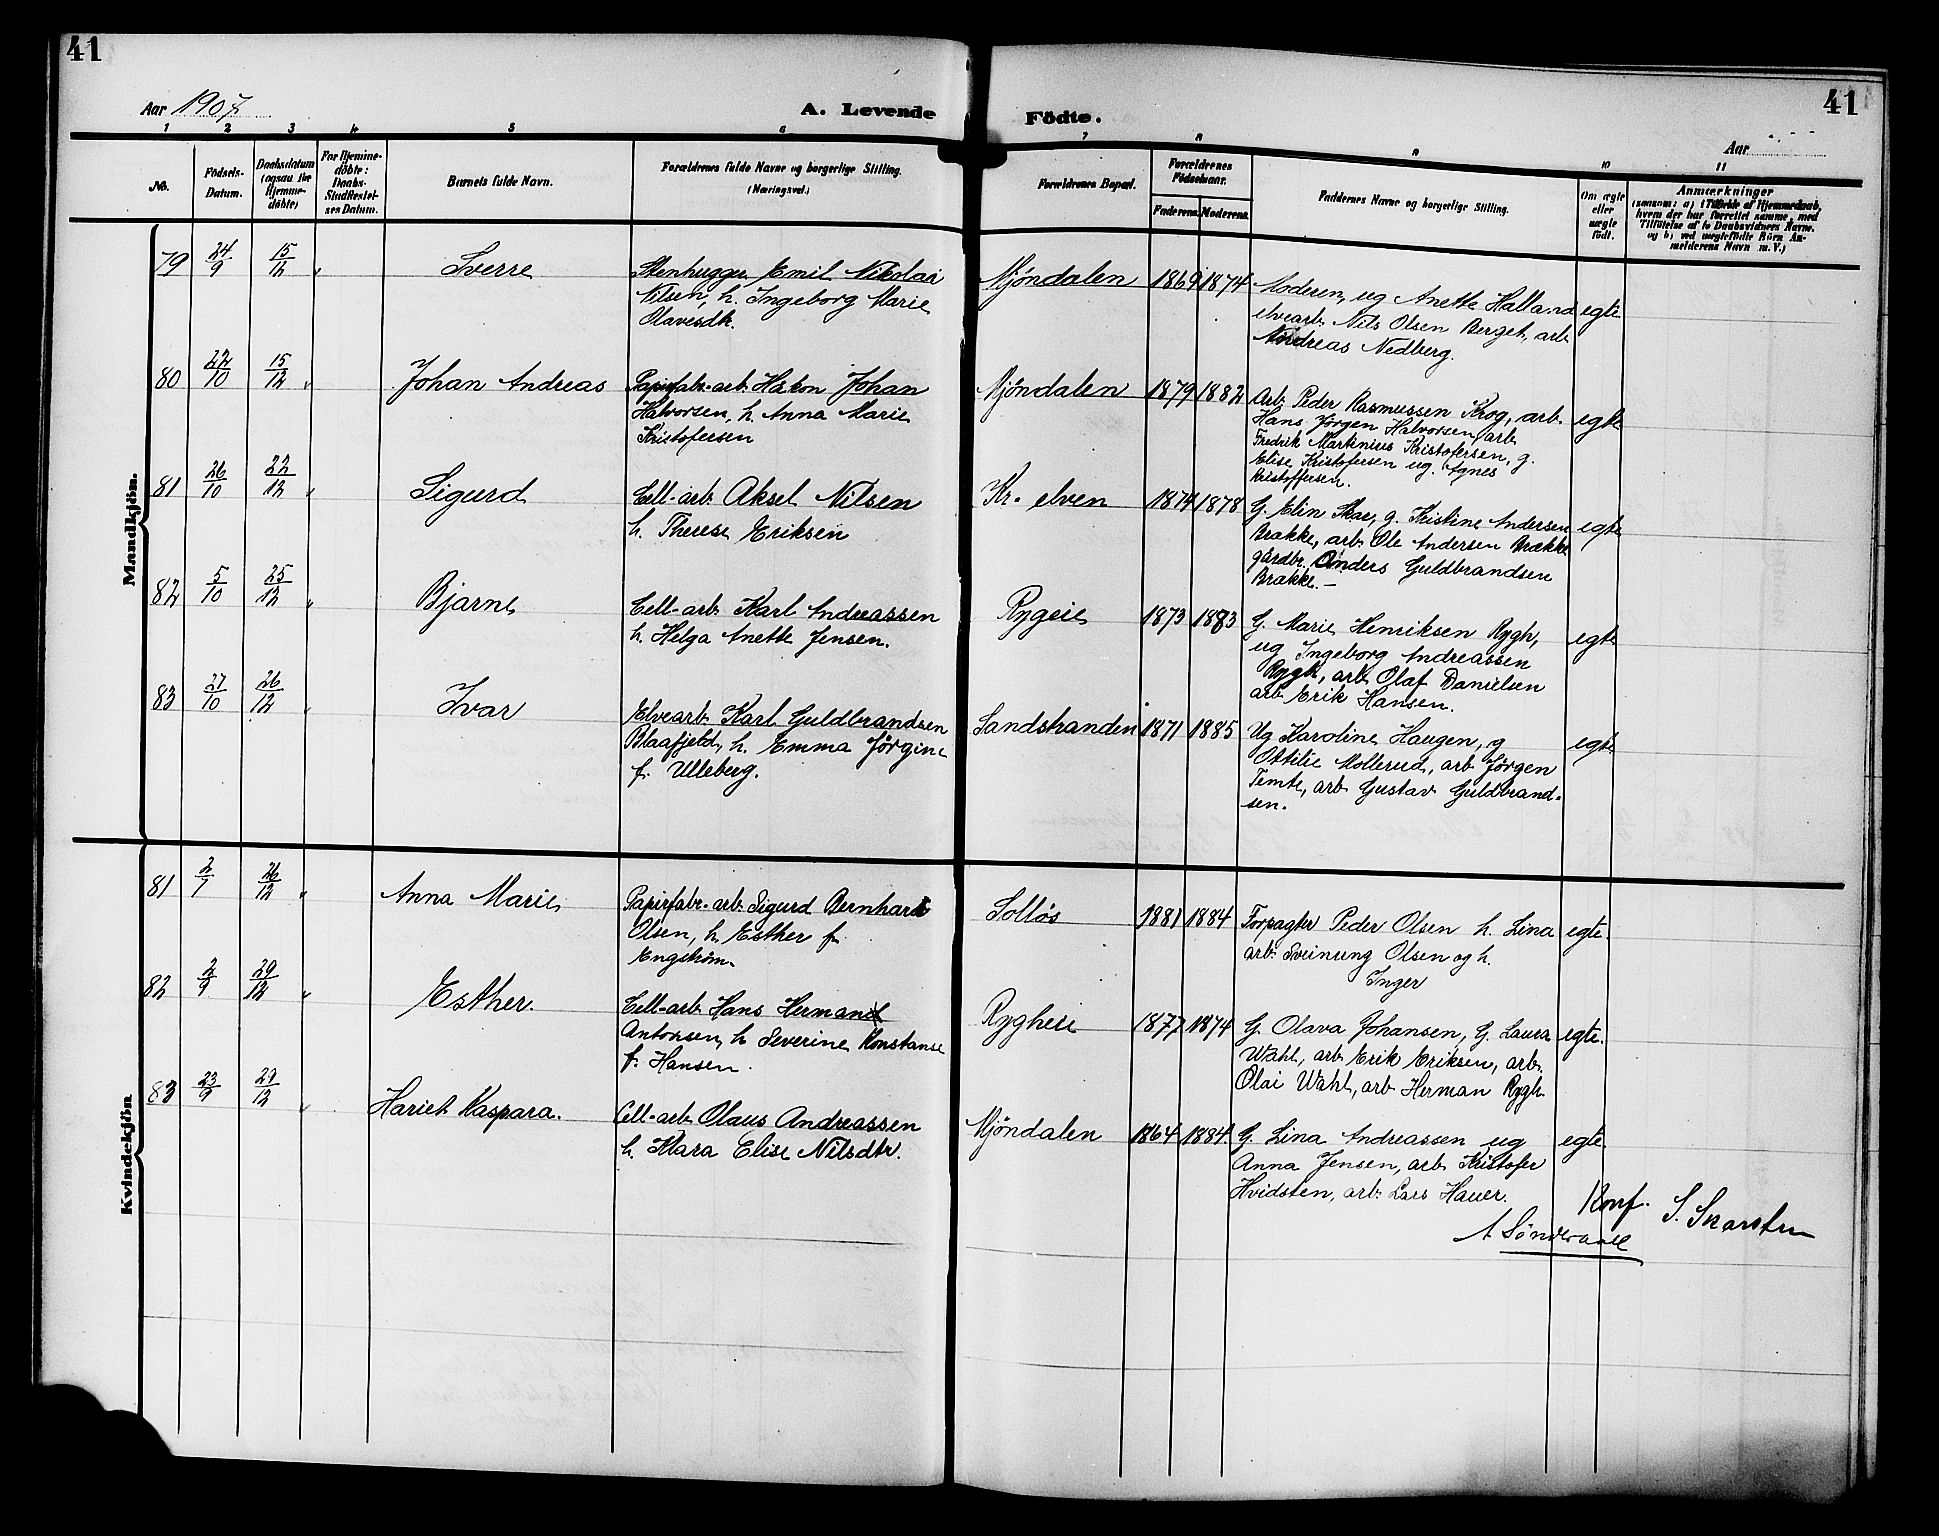 41
41
Aar 1907
A. Levende
Födte.
Aar
1 2 3 4 5 6 7 8 9 10 11
No.
Födsels-
Datum.
Daabsdatum
(ogsaa for
Hjemme-
döbte)
For Hjemme-
döbte:
Daabs-
Stadfæstel-
ses Datum.
Barnets fulde Navn.
Forældrenes fulde Navne og borgerlige Stilling.
(Næringsvei.)
Forældrenes Bopæl.
Forældrenes
Födselsaar.
Faderens. Moderens.
Faddernes Navne og borgerlige Stilling.
Om ægte
eller
uægte
födt.
Anmærkninger
(saasom: a) i Tilfælde af Hjemmedaab,
hvem der har forrettet samme, med
Tilföielse af to Daabsvidners Navne.
og b) ved uægtefödte Börn An-
melderens Navn m. V.)
Mandkjön.
79 24/9 15/12 " Sverre
Stenhugger Emil Nikolai
Nilsen, h. Ingeborg Marie
Olavesdtr.
Mjöndalen 1869 1874
Moderen, ug Anette Halland
elvearb. Nils Olsen Berget, arb
Andreas Nedberg.
egte
80 22/10 15/12 " Johan Andreas
Papirfabr.-arb. Hakon Johan
Halvorsen, h. Anna Marie
Kristofersen
Mjöndalen 1879 1882
Arb. Peder Rasmussen Krog, arb.
Hans Jörgen Halvorsen, arb
Fredrik Martinius Kristofersen, g.
Elise Kristofersen ug. Agnes
Kristoffersen.
egte
81 26/10 22/12 " Sigurd
Cell-arb. Aksel Nilsen
h. Therese Eriksen
Kr.elven 1874 1878
G. Elin Skar, g. Kristine Andersen
Brække, arb. Ole Andersen Brække
gårdbr. Anders Guldbrandsen
Brække.-
egte
82 5/10 25/12 " Bjarne
Cell-arb. Karl Andreassen
h. Helga Anette Jensen.
Rygeie 1873 1883
G. Marie Henriksen Rygh,
ug Ingeborg Andreassen
Rygh, arb. Olaf Danielsen
arb. Erik Hansen.
egte
83 27/10 26/12 " Ivar
Elvearb. Karl Guldbrandsen
Blaafjeld, h. Emma Jörgine
f. Ulleberg.
Sandstranden 1871 1885
Ug Karoline Haugen, g
Ottilie Mollerud, arb. Jörgen
Temte, arb. Gustav Guldbrand-
sen.
egte
Kvindekjön
81 2/7 26/12 " Anna Marie
Papirfabr.-arb. Sigurd Bernhard
Olsen, h. Esther f.
Engström.
Solløs 1881 1884
Forpagter Peder Olsen h. Lina
arb. Sveinung Olsen og h.
Inger
egte.
82 2/9 29/12 " Esther.
Cell-arb. Hans Herman
Antonsen, h Severine Konstanse
f. Hansen.
Rygheie 1877 1874
G. Olava Johansen, G. Laura
Wahl, arb. Erik Eriksen, arb.
Olai Wahl, arb. Herman Rygh.
egte.
83 23/9 29/12 " Hariet Kaspara.
Cell-arb. Olaus Andreassen
h. Klara Elise Nilsdtr.
Mjöndalen 1864 1884
G. Lina Andreassen ug
Anna Jensen, arb. Kristofer
Hvidsten, arb. Lars Hauer.
egte.
Konf. S. Skarsten
A Sönderaal